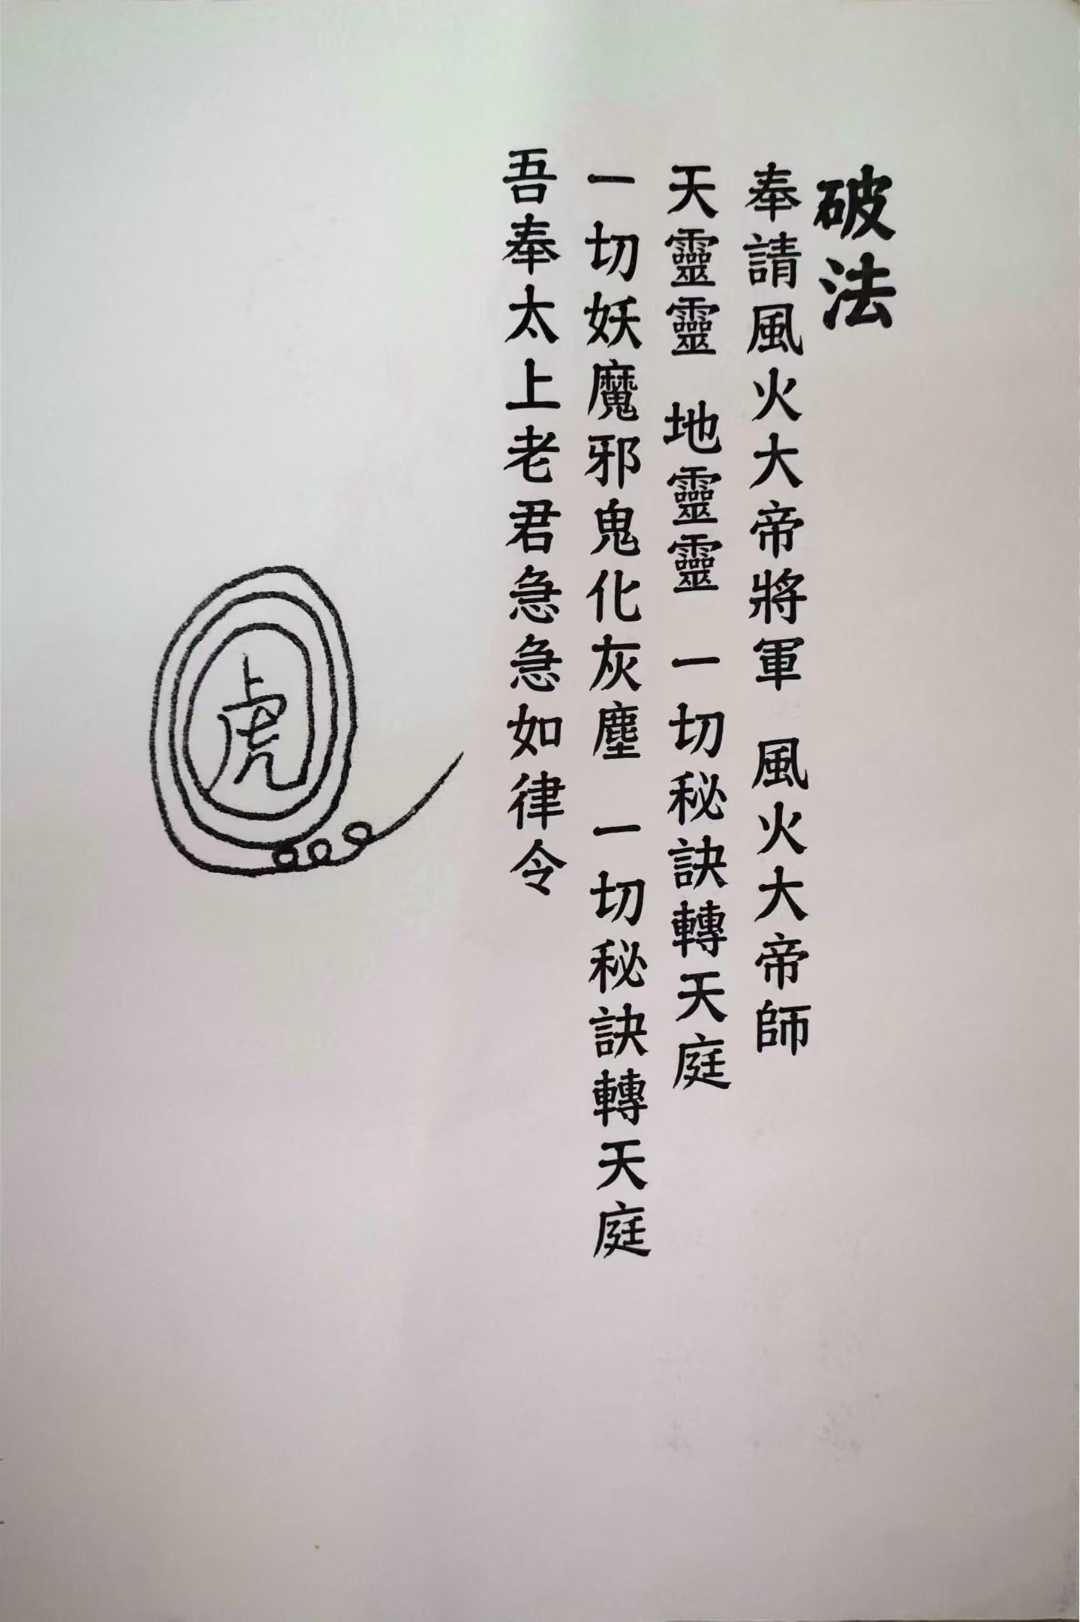 破法
奉請風火大帝將軍 風火大帝師
天靈靈 地靈靈 一切秘訣轉天庭
一切妖魔邪鬼化灰塵 一切秘訣轉天庭
吾奉太上老君急急如律令
虎